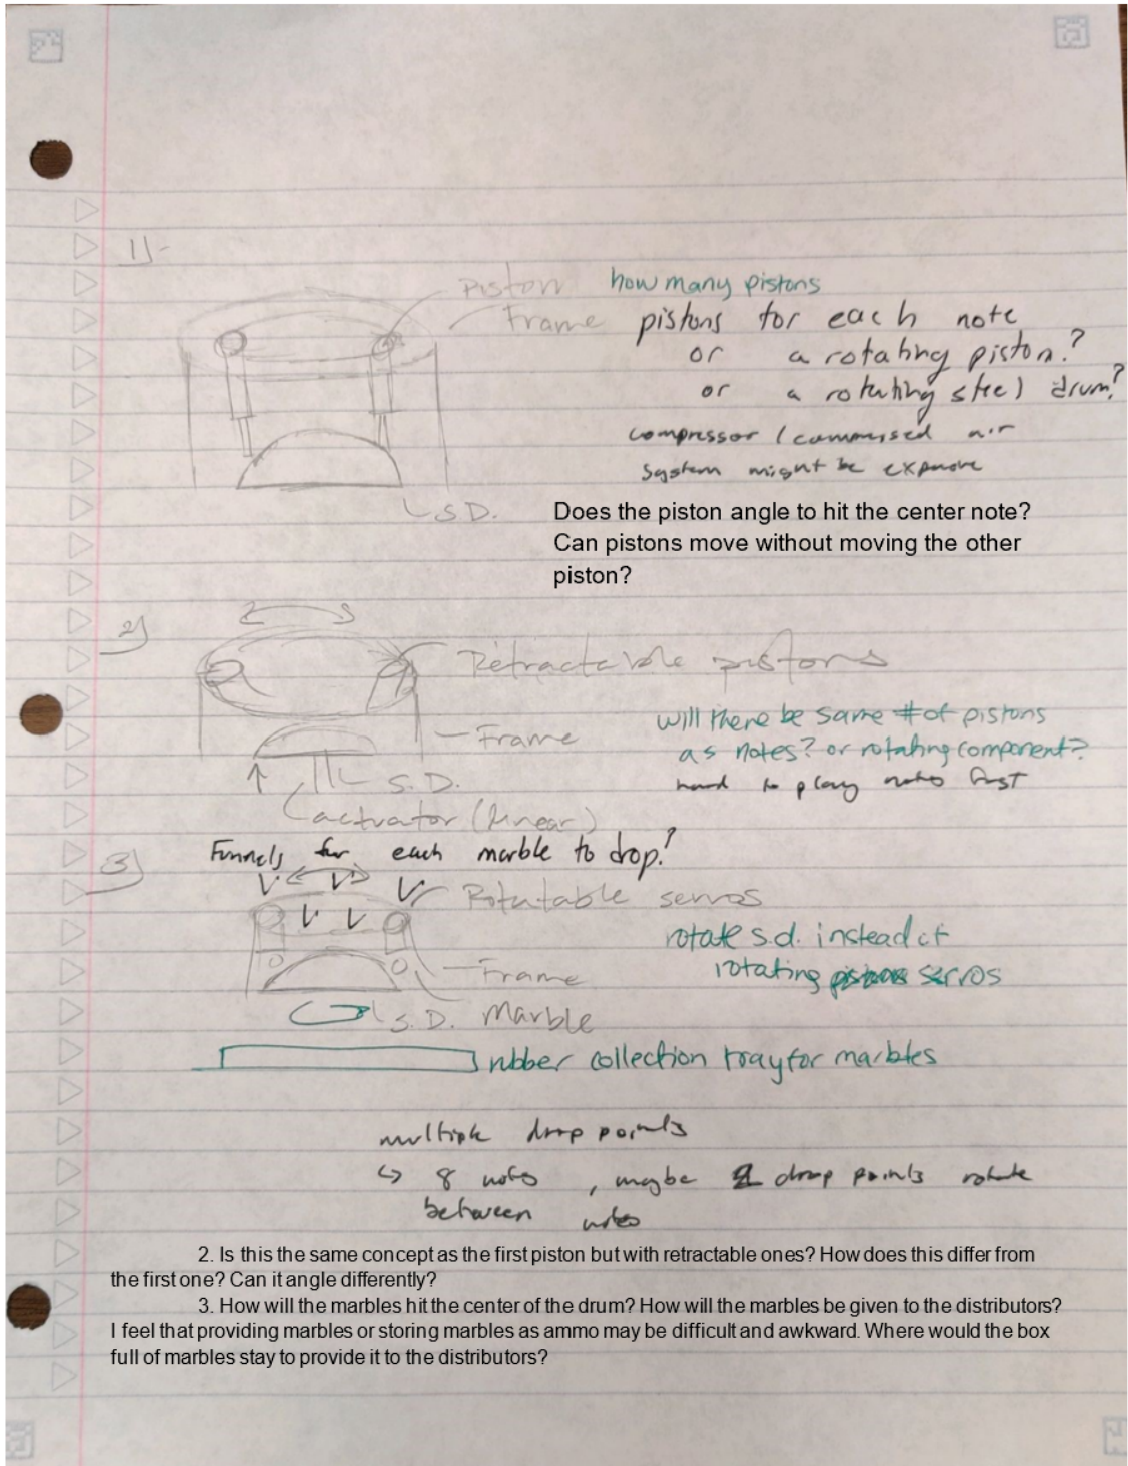 1)-
Piston how many pistons
Frame pistons for each note
or a rotating piston?
or a rotating steel drum?
compressor / commersed air
system might be expensive
S.D.
Does the piston angle to hit the center note?
Can pistons move without moving the other
piston?
2)
Retractable pistons
will there be same # of pistons
Frame
as notes? or rotating component?
S.D.
hard to play notes fast
actuator (linear)
3)
Funnels for each marble to drop?
Rotatable servos
rotate s.d. instead of
Frame
rotating servos
S.D. Marble
rubber collection tray for marbles
multiple drop points
↳ 8 notes , maybe drop points rotate
between notes
2. Is this the same concept as the first piston but with retractable ones? How does this differ from
the first one? Can it angle differently?
3. How will the marbles hit the center of the drum? How will the marbles be given to the distributors?
I feel that providing marbles or storing marbles as ammo may be difficult and awkward. Where would the box
full of marbles stay to provide it to the distributors?